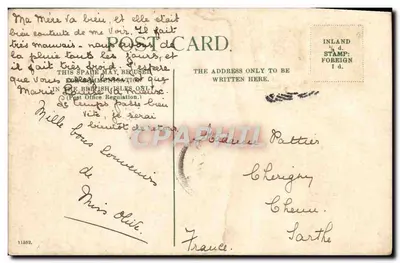 Ma Mère va bien, et elle était
très contente de me voir. Il fait
très mauvais - nous avons de
la pluie tous les jours, et
il fait très froid. J'espère
que vous allez bien, et que
Marie
le temps passe bien
vite, je serai
bientôt de
Mille bons Souvenirs
de
Miss Olive.
POST CARD.
THIS SPACE MAY BE USED
THE BRITISH ISLES ONLY
(Post Office Regulation.)
THE ADDRESS ONLY TO BE
WRITTEN HERE.
INLAND
½ d.
STAMP:
FOREIGN
1 d.
CPARAMA
Madame Pattier
Cherigny
Chenu
Sarthe
France.